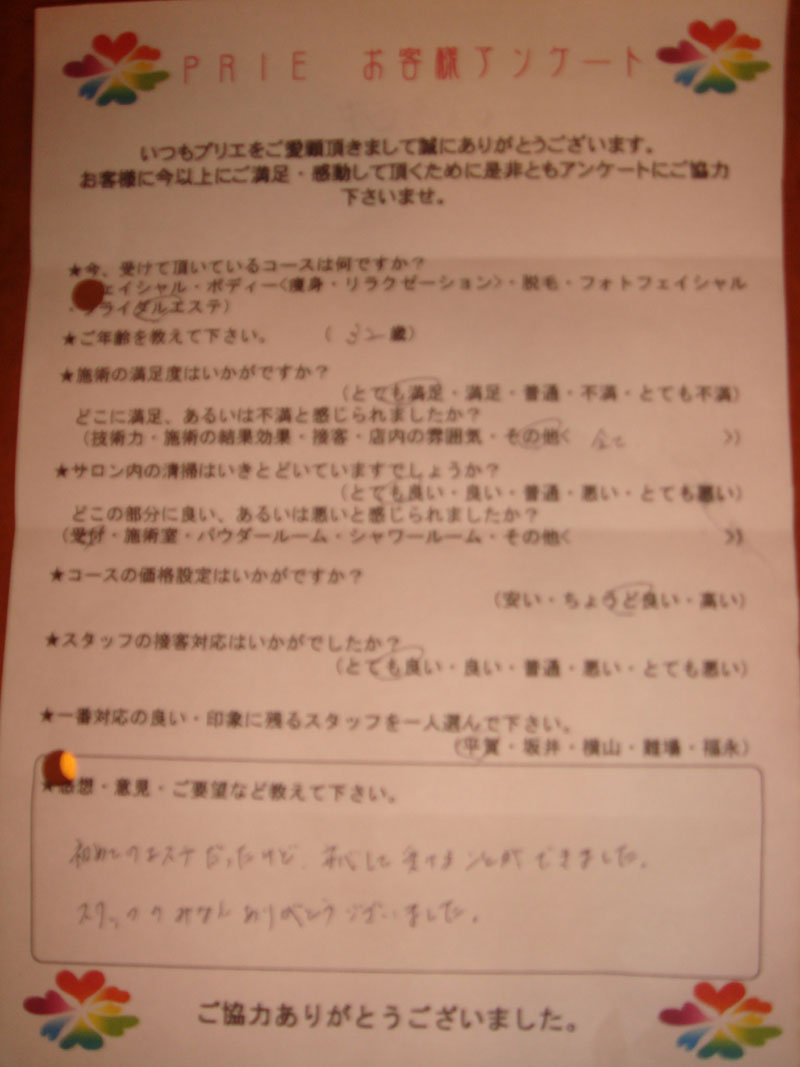 PRIE お客様アンケート
いつもプリエをご愛顧頂きまして誠にありがとうございます。
お客様に今以上にご満足・感動して頂くために是非ともアンケートにご協力
下さいませ。
★今、受けて頂いているコースは何ですか？
ェイシャル・ボディー<痩身・リラクゼーション>・脱毛・フォトフェイシャル
・ブライダルエステ）
★ご年齢を教えて下さい。 （ 32 歳）
★施術の満足度はいかがですか？
（とても満足・満足・普通・不満・とても不満）
どこに満足、あるいは不満と感じられましたか？
（技術力・施術の結果効果・接客・店内の雰囲気・その他< 全て >）
★サロン内の清掃はいきとどいていますでしょうか？
（とても良い・良い・普通・悪い・とても悪い）
どこの部分に良い、あるいは悪いと感じられましたか？
（受付・施術室・パウダールーム・シャワールーム・その他< >）
★コースの価格設定はいかがですか？
（安い・ちょうど良い・高い）
★スタッフの接客対応はいかがでしたか？
（とても良い・良い・普通・悪い・とても悪い）
★一番対応の良い・印象に残るスタッフを一人選んで下さい。
（平賀・坂井・横山・難場・福永）
★感想・意見・ご要望など教えて下さい。
初めてのエステだったけど、安心して受けることができました。
スタッフのみなさんありがとうございました。
ご協力ありがとうございました。